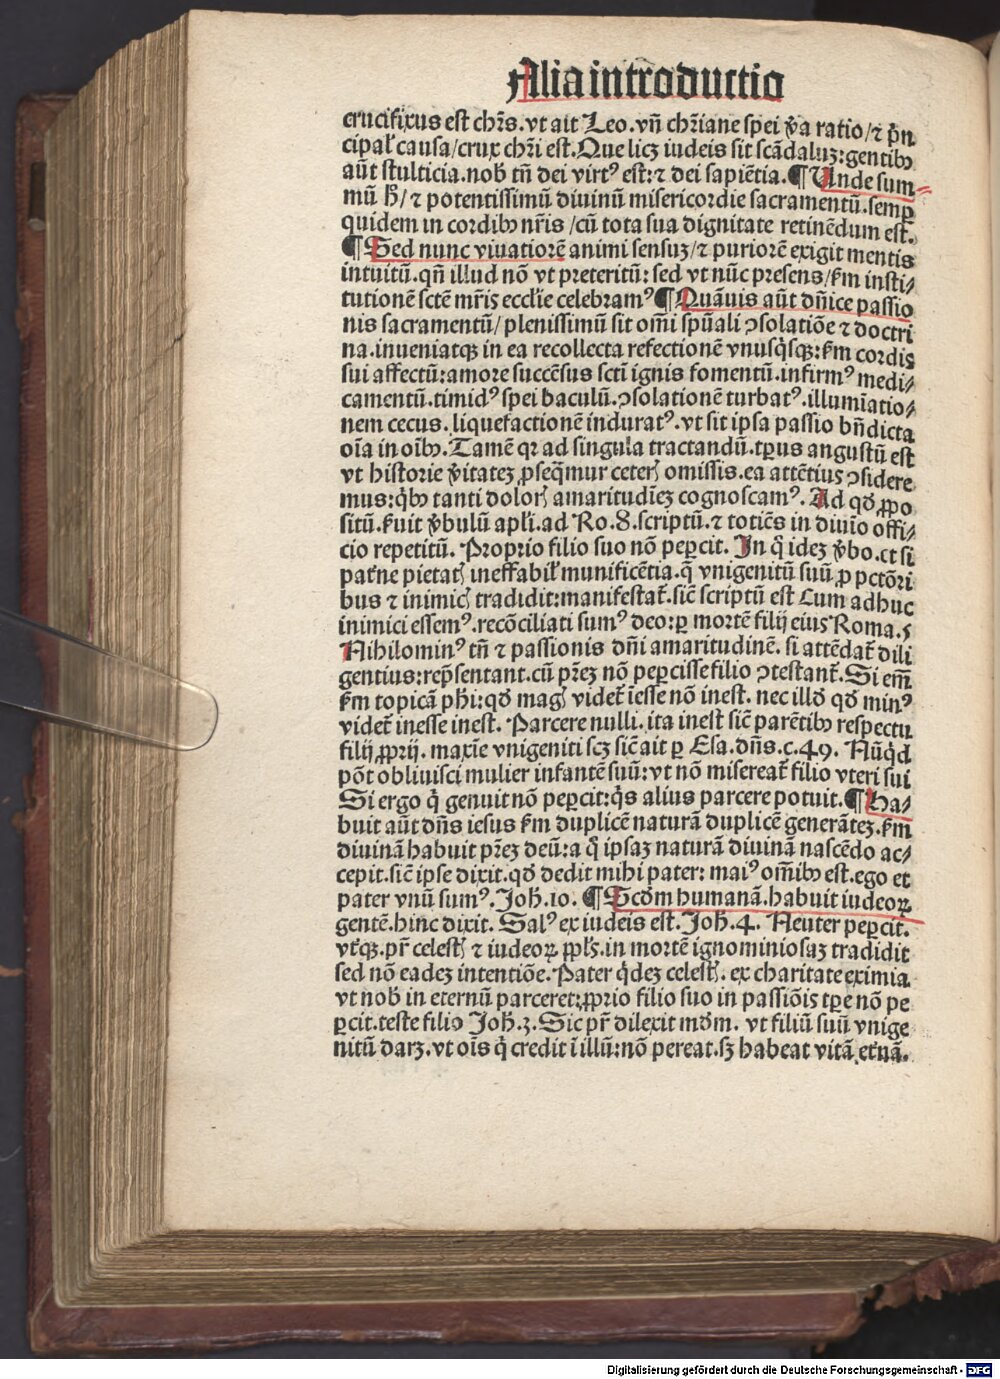 Alia introductio
crucifixus est chr̄s. vt ait Leo. vn̄ chr̄iane spei v̄a ratio/⁊ p̄n
cipal' causa/crux chr̄i est. Que licꝫ iudeis sit scādaluꝫ: gentibꝰ
aūt stulticia. nob̄ tn̄ dei virtꝰ est: ⁊ dei sapiētia. ¶ Unde sum⸗
mū h̄/⁊ potentissimū diuinū misericordie sacramentū. semꝑ
quidem in cordibꝰ nr̄is/cū tota sua dignitate retinēdum est.
¶ Sed nunc viuatiorē animi sensuꝫ/⁊ puriorē exigit mentis
intuitū. qn̄ illud nō vt preteritū: sed vt nūc presens/s̄m insti⸗
tutionē sctē mr̄is eccl'ie celebramꝰ ¶ Quāuis aūt dn̄ice passio
nis sacramentū/plenissimū sit om̄i spūali ꝯsolatiōe ⁊ doctri
na. inueniatqꝫ in ea recollecta refectionē vnusq̇sqꝫ: s̄m cordis
sui affectū: amore succēsus sctī ignis fomentū. infirmꝰ medi⸗
camentū. timidꝰ spei baculū. ꝯsolationē turbatꝰ. illumīatio⸗
nem cecus. liquefactionē induratꝰ. vt sit ipsa passio bn̄dicta
oīa in oībꝰ. Tamē qꝛ ad singula tractandū. tꝑus angustū est
vt historie v̄itateꝫ ꝓseq̄mur ceterꝭ omissis. ea attētius ꝯsidere
mus: q̇bꝰ tanti dolorꝭ amaritudīeꝫ cognoscamꝰ. Ad qḋ ꝓpo
sitū. s̄uit v̄bulū apl'i. ad Ro. 8. scriptū. ⁊ totiēs in diuīo offi⸗
cio repetitū. Proprio filio suo nō peꝑcit. In q̇ ideꝫ v̄bo. et si
pat̄ne pietatꝭ ineffabil' munificētia. q̄ vnigenitū suū ꝓ pctōri
bus ⁊ inimicꝭ tradidit: manifestat̄. sic̄ scriptū est Cum adhuc
inimici essemꝰ. recōciliati sumꝰ deo: ꝑ mortē filij eius Roma. 5
Nihilominꝰ tn̄ ⁊ passionis dn̄i amaritudinē. si attēdat̄ dili
gentius: rep̄sentant. cū pr̄eꝫ nō peꝑcisse filio ꝯtestant̄. Si em̄
s̄m topicā ph̄i: qḋ magꝭ videt̄ īesse nō inest. nec illḋ qḋ minꝰ
videt̄ inesse inest. Parcere nulli. ita inest sic̄ parētibꝰ respectu
filij ꝓprij. maxīe vnigeniti scꝫ sic̄ ait ꝑ Esa. dn̄s. c. 49. Nūq̇d
pōt obliuisci mulier infantē suū: vt nō misereat̄ filio vteri sui
Si ergo q̇ genuit nō peꝑcit: q̇s alius parcere potuit. ¶ Ha⸗
buit aūt dn̄s iesus s̄m duplicē naturā duplicē generāteꝫ. s̄m
diuinā habuit pr̄eꝫ deū: a q̇ ipsaꝫ naturā diuinā nascēdo ac⸗
cepit. sic̄ ipse dixit. qḋ dedit mihi pater: maiꝰ om̄ibꝰ est. ego et
pater vnū sumꝰ. Joh̄. 10. ¶ Scḋm humanā. habuit iudeoꝝ
gentē. hinc dixit. Salꝰ ex iudeis est. Joh̄. 4. Neuter peꝑcit.
vt̄qꝫ. pr̄ celestꝭ ⁊ iudeoꝝ ppl's. in mortē ignominiosaꝫ tradidit
sed nō eadeꝫ intentiōe. Pater q̇deꝫ celestꝭ. ex charitate eximia
vt nob̄ in eternū parceret: ꝓprio filio suo in passiōis tꝑe nō pe
ꝑcit. teste filio Joh̄. 3. Sic pr̄ dilexit mḋm. vt filiū suū vnige
nitū darꝫ. vt oīs q̇ credit ī illū: nō pereat. sꝫ habeat vitā et̄nā.
Digitalisierung gefördert durch die Deutsche Forschungsgemeinschaft - DFG